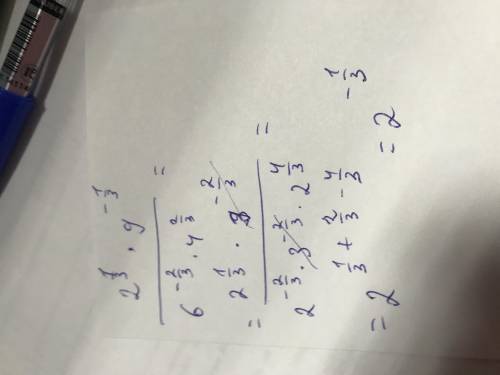 2^{1/3} · 9^{-1/3} / 6^{-2/3} · 4^{2/3} =
= 2^{1/3} · 3^{-2/3} / 2^{-2/3} · 3^{-2/3} · 2^{4/3} =
= 2^{1/3 + 2/3 - 4/3} = 2^{-1/3}